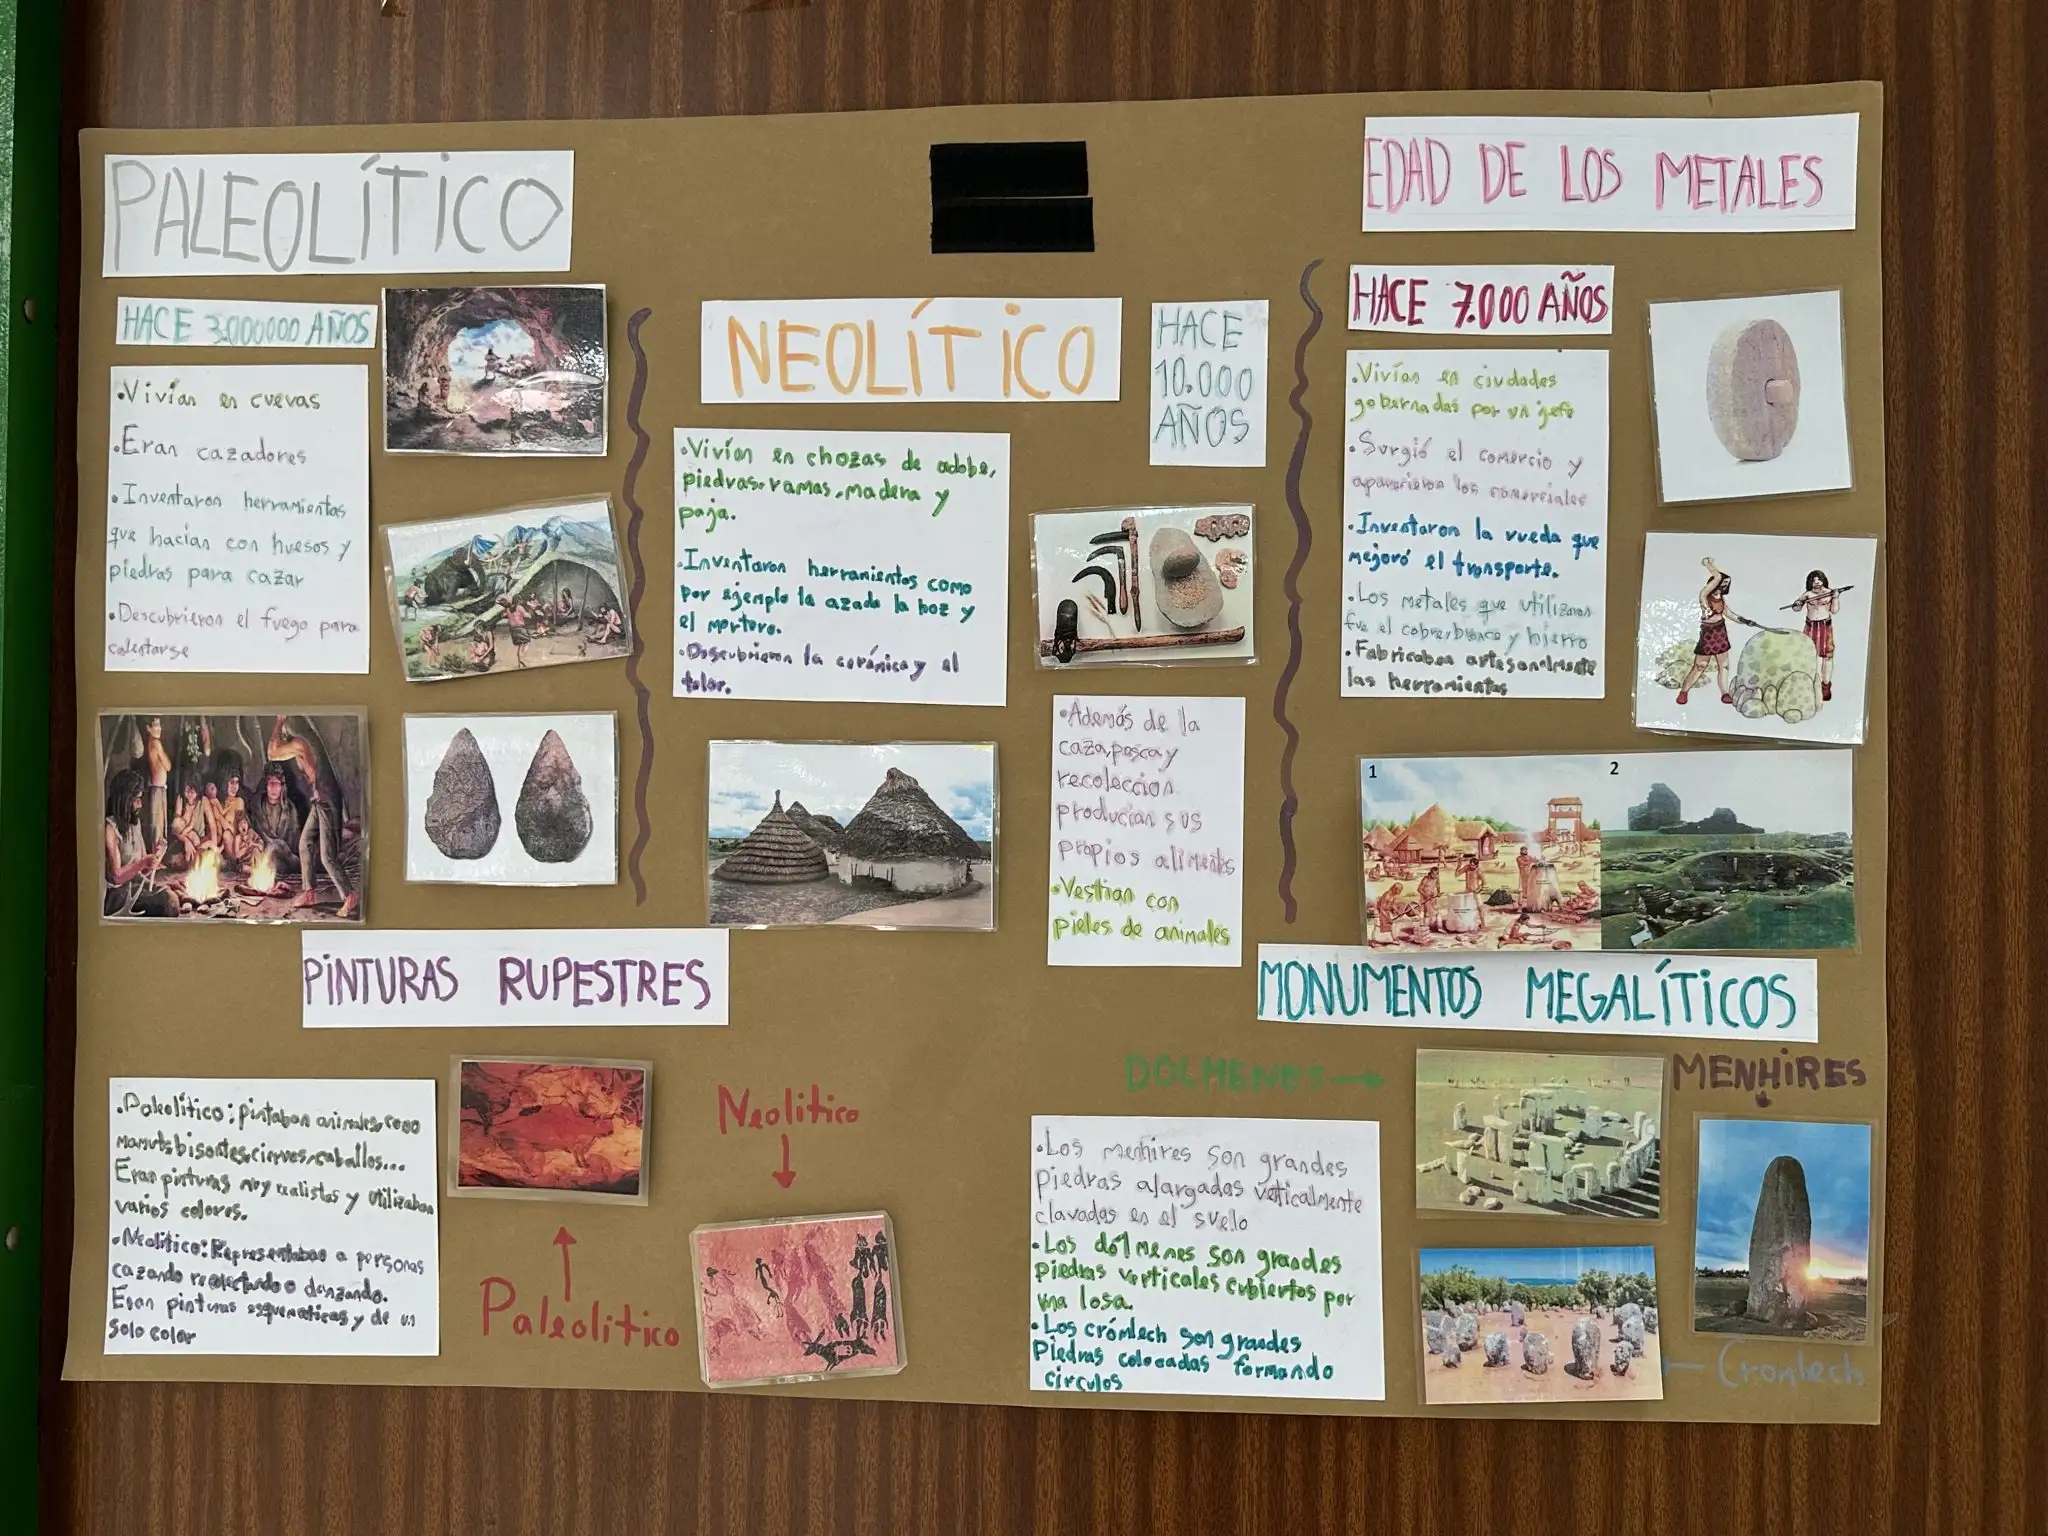 PALEOLÍTICO
HACE 3.000000 AÑOS
•Vivían en cuevas
•Eran cazadores
•Inventaron herramientas
que hacían con huesos y
piedras para cazar
•Descubrieron el fuego para
calentarse
NEOLÍTICO
HACE
10.000
AÑOS
•Vivían en chozas de adobe,
piedras, ramas, madera y
paja.
•Inventaron herramientos como
por ejemplo la azada la hoz y
el mortero.
•Descubrieron la cerámica y el
telar.
•Además de la
caza, pesca y
recolección
producían sus
propios alimentos
•Vestian con
pieles de animales
EDAD DE LOS METALES
HACE 7.000 AÑOS
•Vivían en ciudades
gobernadas por un jefe
•Surgió el comercio y
aparecieron los comerciales
•Inventaron la rueda que
mejoró el transporte.
•Los metales que utilizaron
fue el cobre, bronce y hierro
•Fabricaban artesanalmente
las herramientas
1
2
PINTURAS RUPESTRES
•Paleolítico: pintaban animales, como
mamuts, bisontes, ciervos, caballos...
Eran pinturas muy realistas y utilizaban
varios colores.
•Neolitico: Representaban a personas
cazando recolectando o danzando.
Eran pinturas esquematicas y de un
solo color
Paleolitico
Neolitico
MONUMENTOS MEGALÍTICOS
DOLMENES
MENHIRES
•Los menhires son grandes
piedras alargadas verticalmente
clavadas en el suelo
•Los dólmenes son grandes
piedras verticales cubiertos por
una losa.
•Los crómlech son grandes
piedras colocadas formando
círculos
Cromlech